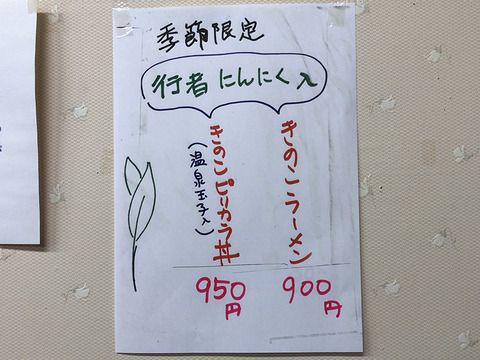 季節限定
行者にんにく入
きのこラーメン
900
円
きのこピリカラ丼
(温泉玉子入)
950
円